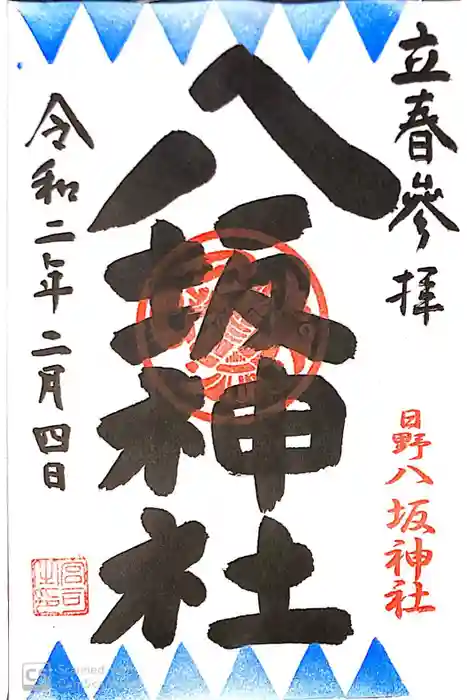 立春參拝
日野八坂神社
八坂神社
令和二年二月四日